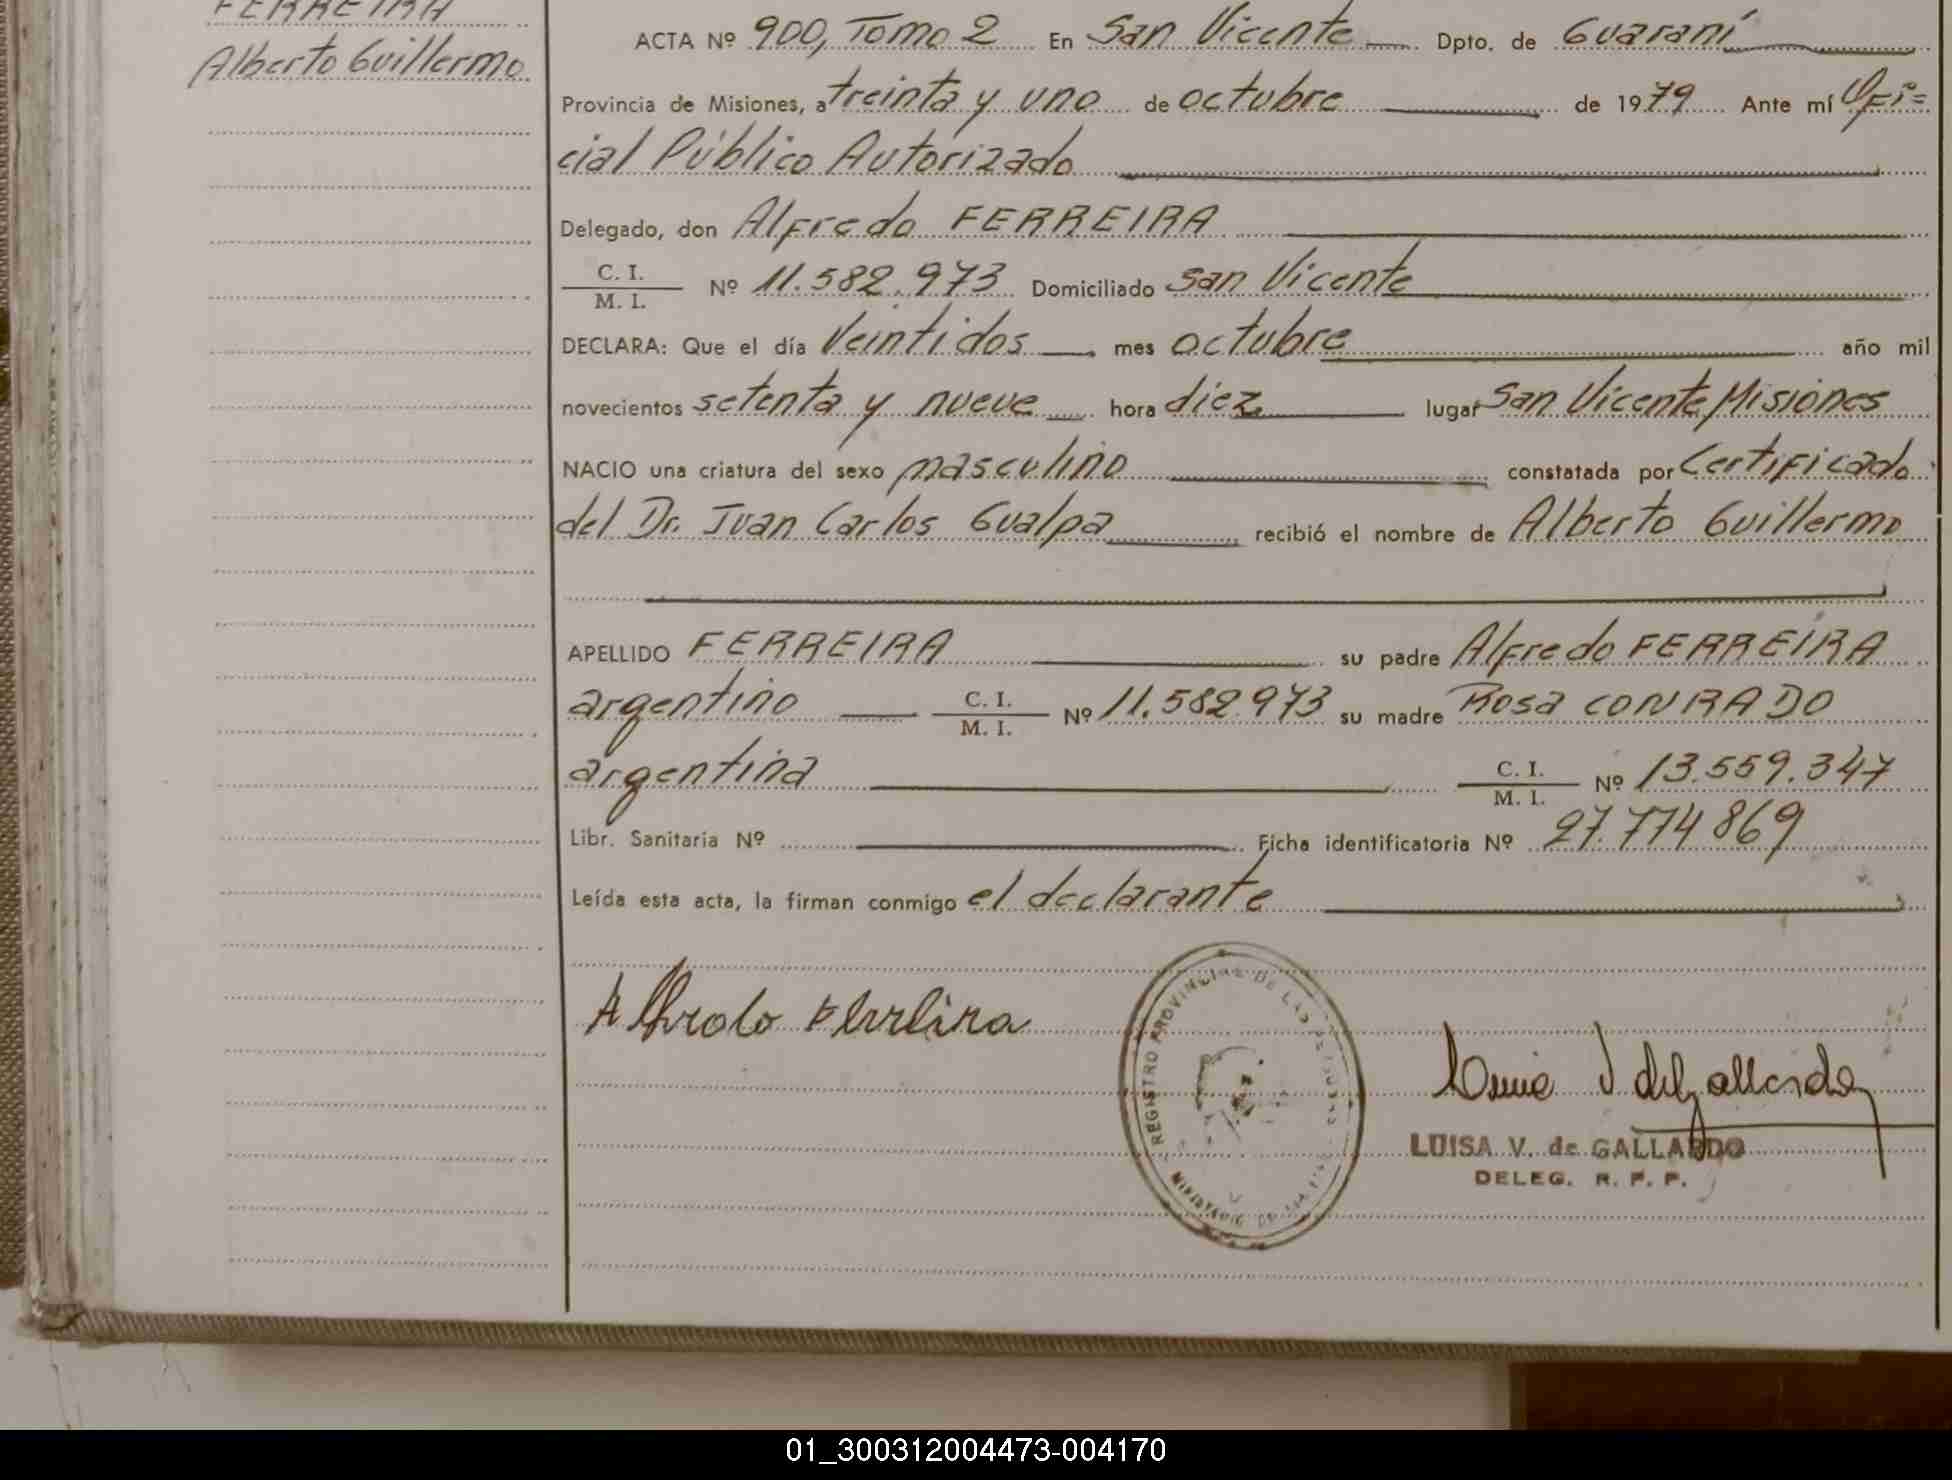 FERREIRA
Alberto Guillermo
ACTA Nº 900, Tomo 2 En San Vicente Dpto. de Guaraní
Provincia de Misiones, a treinta y uno de octubre de 1979 Ante mí Ofi=
cial Público Autorizado
Delegado, don Alfredo FERREIRA
C. I.
M. I. Nº 11.582.973 Domiciliado San Vicente
DECLARA: Que el día Veintidos mes octubre año mil
novecientos setenta y nueve hora diez lugar San Vicente, Misiones
NACIO una criatura del sexo masculino constatada por Certificado
del Dr. Juan Carlos Gualpa recibió el nombre de Alberto Guillermo
APELLIDO FERREIRA su padre Alfredo FERREIRA
argentino C. I.
M. I. Nº 11.582.973 su madre Rosa CONRADO
argentina C. I.
M. I. Nº 13.559.347
Libr. Sanitaria Nº Ficha identificatoria Nº 27.774869
Leída esta acta, la firman conmigo el declarante
REGISTRO PROVINCIAL DE LAS PERSONAS
MINISTERIO DE
LUISA V. de GALLARDO
DELEG. R. P. P.
01_300312004473-004170